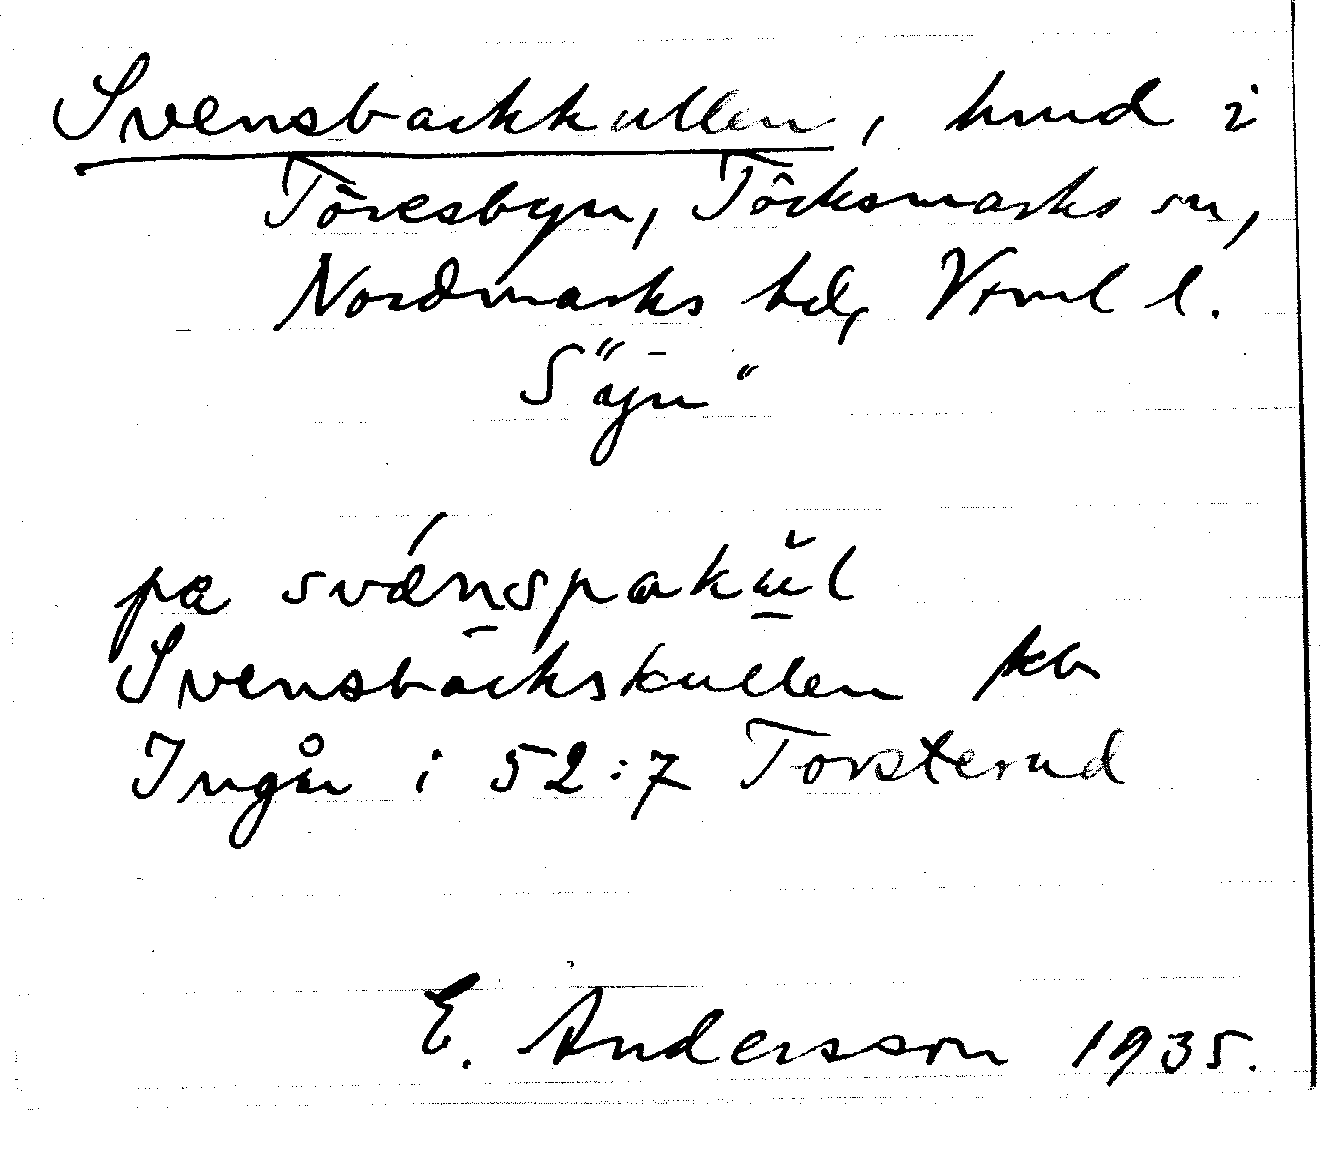 Svensbackkullen, hmd i
Töresbyn, Töcksmarks sn,
Nordmarks hd, Vrml l.
S "yn"
pa svænspakul
Svensbackskullen kb
Ingår i 52:7 Torsterud
E. Andersson 1935.